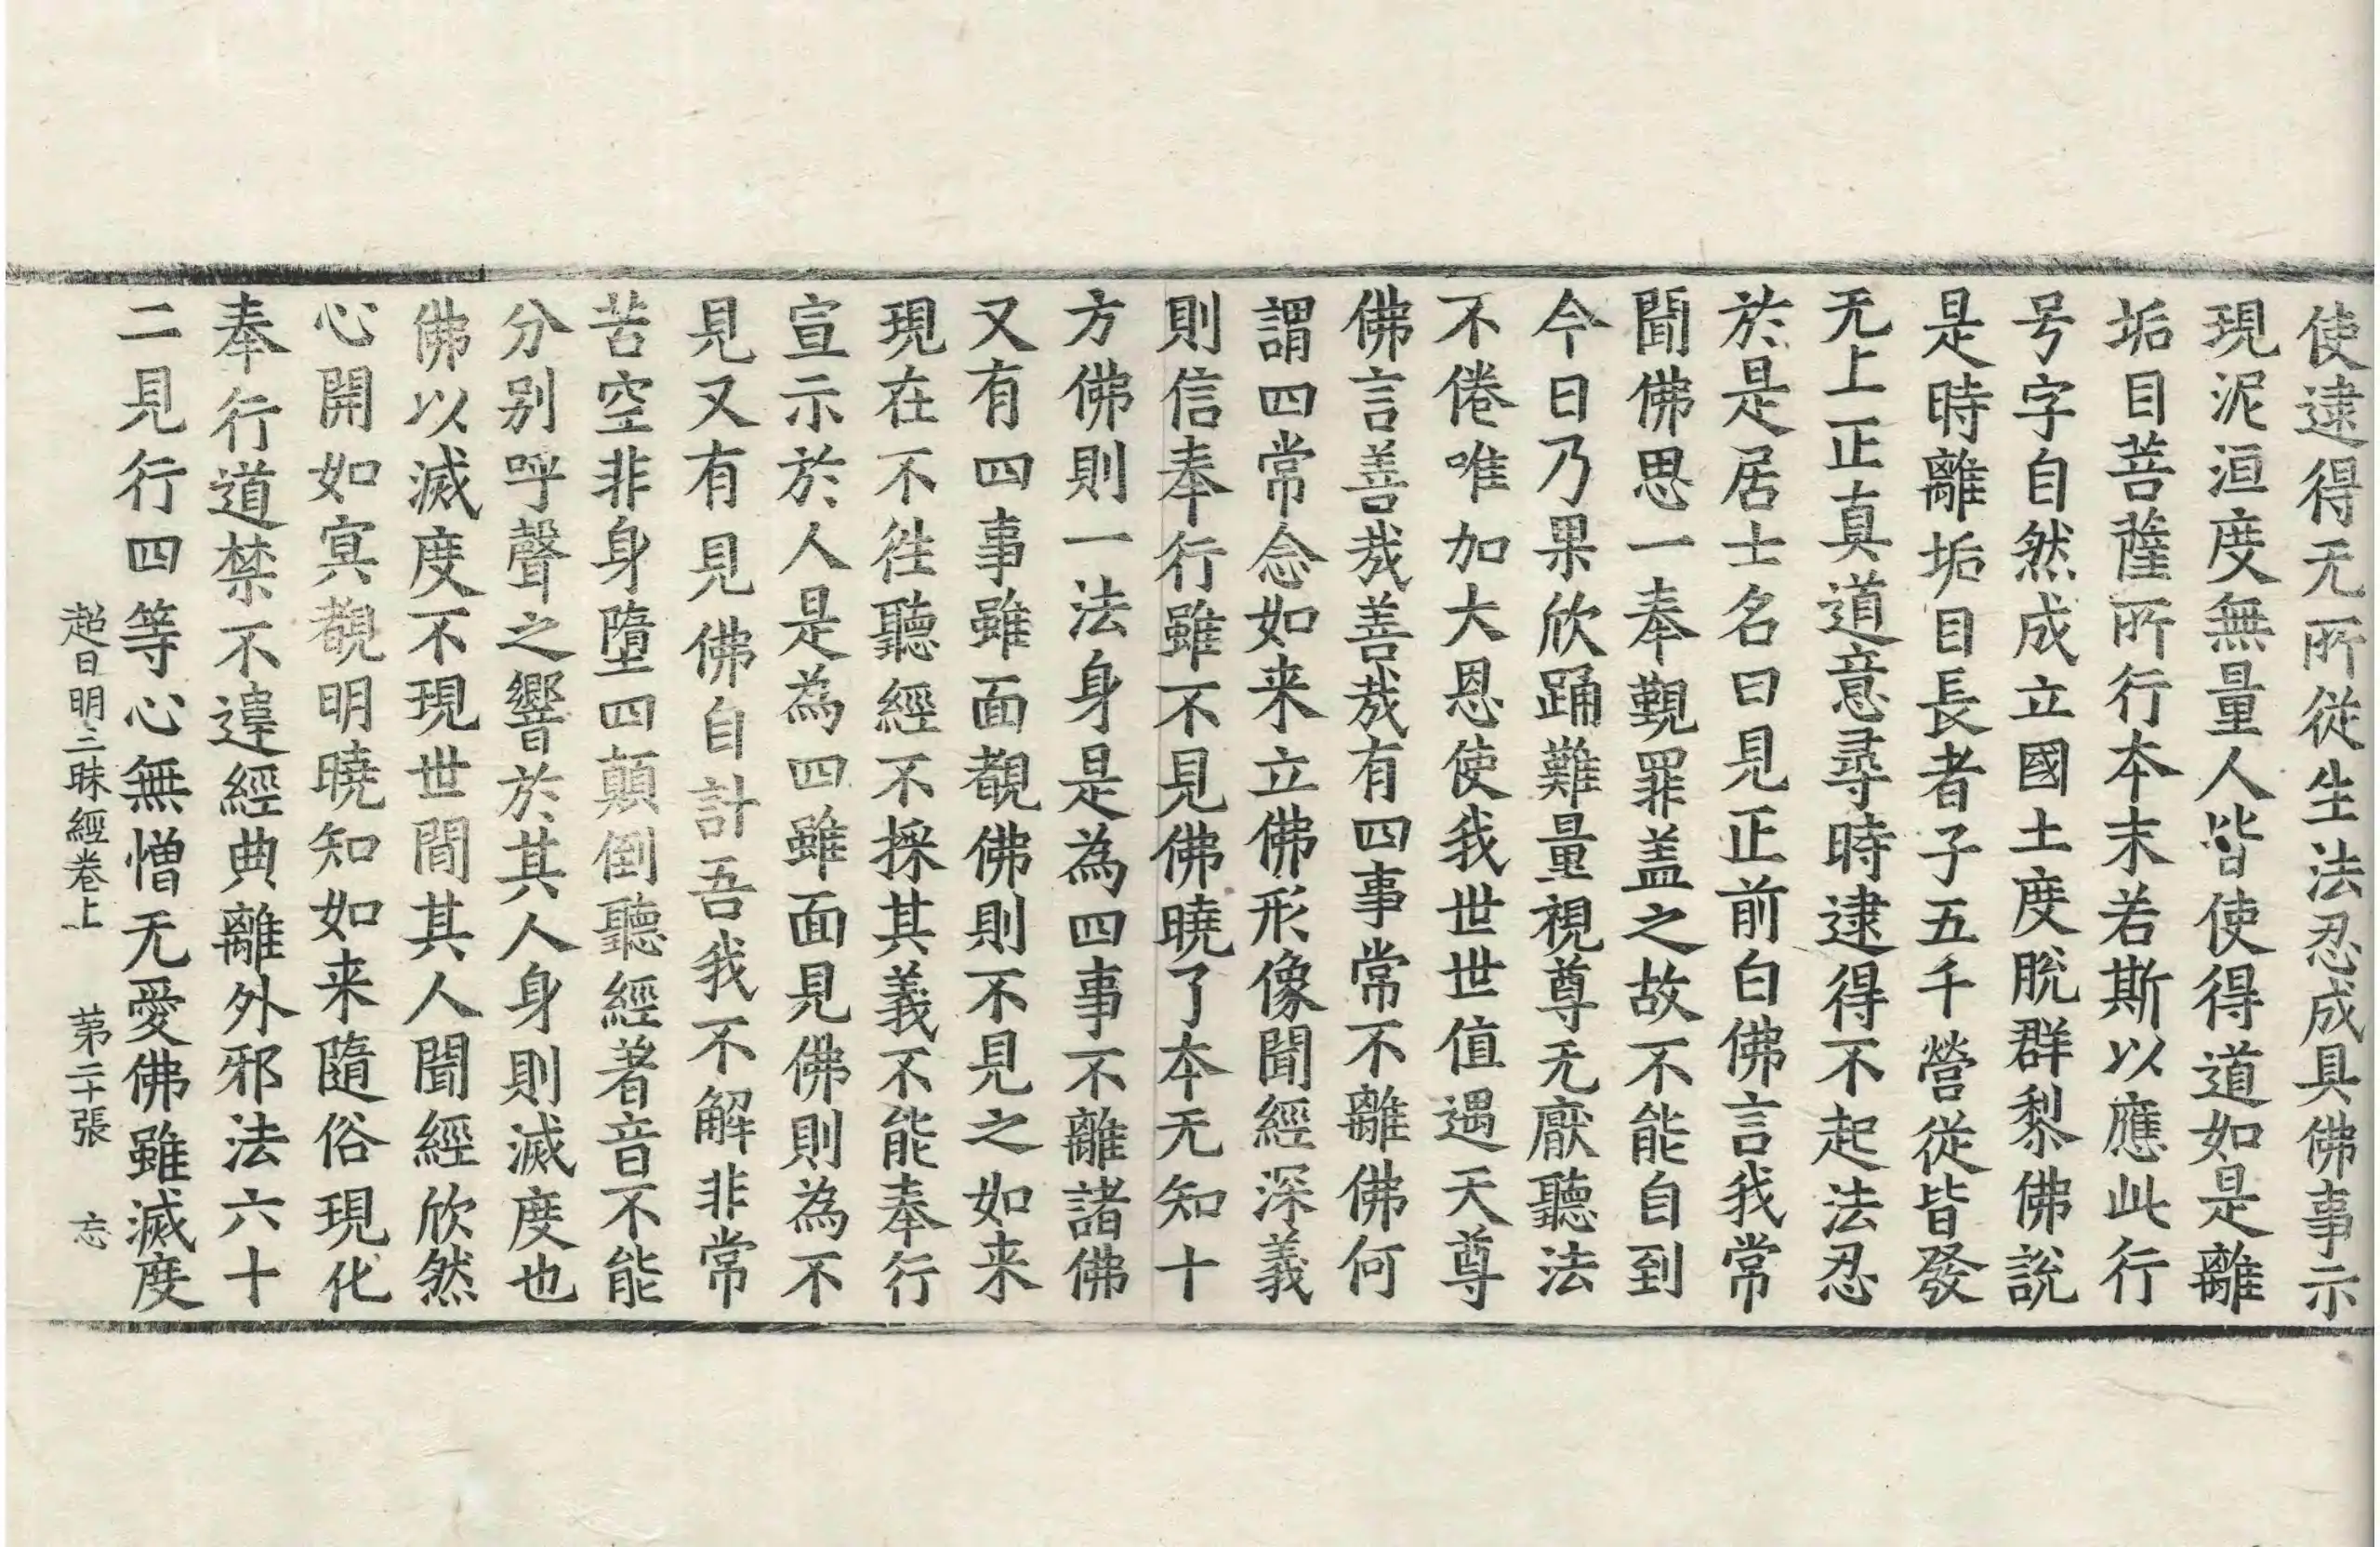 使逮得无所從生法忍成具佛事示
現泥洹度無量人皆使得道如是離
垢目菩薩所行本末若斯以應此行
号字自然成立國土度脫群黎佛說
是時離垢目長者子五千營從皆發
无上正真道意尋時逮得不起法忍
於是居士名曰見正前白佛言我常
聞佛思一奉覲罪盖之故不能自到
今日乃果欣踊難量視尊无厭聽法
不倦唯加大恩使我世世值遇天尊
佛言善哉善哉有四事常不離佛何
謂四常念如来立佛形像聞經深義
則信奉行雖不見佛曉了本无知十
方佛則一法身是為四事不離諸佛
又有四事雖面覩佛則不見之如来
現在不徃聽經不採其義不能奉行
宣示於人是為四雖面見佛則為不
見又有見佛自計吾我不解非常
苦空非身墮四顛倒聽經著音不能
分别呼聲之響於其人身則滅度也
佛以滅度不現世間其人聞經欣然
心開如冥覩明曉知如来隨俗現化
奉行道禁不違經典離外邪法六十
二見行四等心無憎无愛佛雖滅度
超日明三昧經卷上 苐二十張 忘